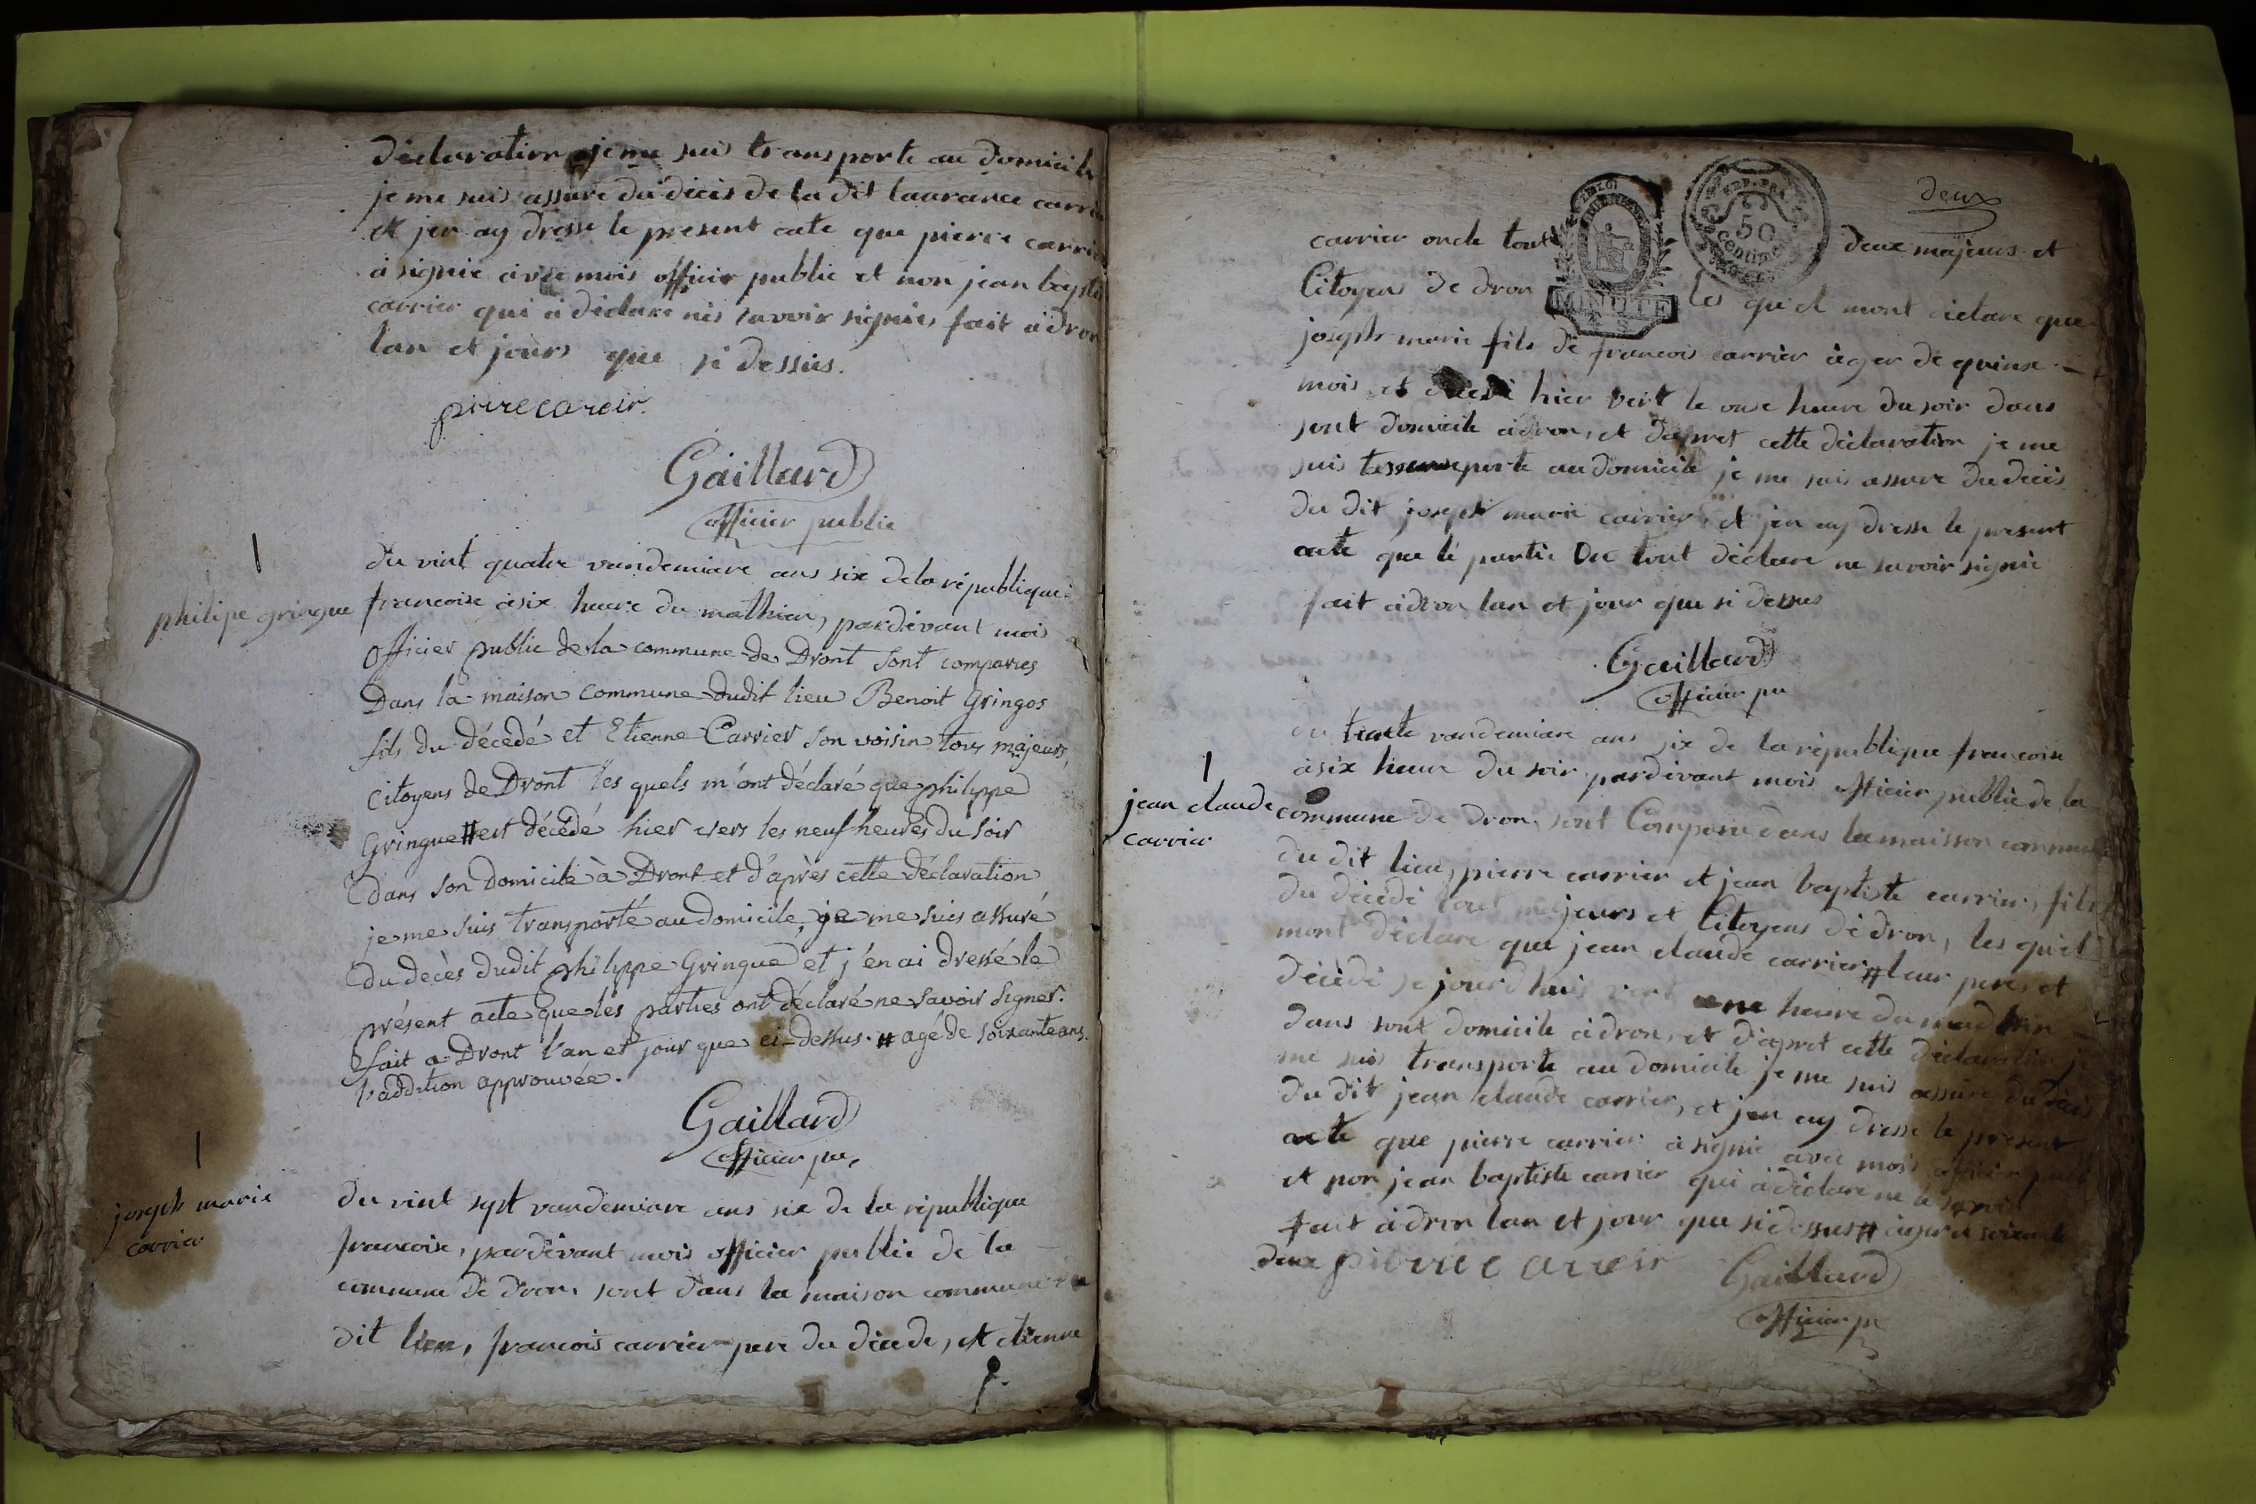 déclaration je me suis transporte au domicile
je me suis assure du décès de la dit laurance carrie
et jen ay dresse le present acte que pierre carrie
à signie avec mois officier public et non jean baptis
carrier qui à déclare nés savoir signies fait à dron
lan et jours que si dessus.
pirre caroir
Gaillard
officier public
philipe gringue
du vint quatre vandemiare ans six de la république
francoise à six heure du mathien, pardevant mois
officier public de la commune de Dront sont comparues
Dans la maison commune dudit lieu Benoit Gringos
fils du décedé et Etienne Carrier son voisin tous majeurs,
citoyens de Dront les quels m'ont déclaré que philyppe
Gringue # est décédé hier vers les neuf heures du soir
dans son Domicile à Dront et d'après cette déclaration
je me suis transporté au domicile, je me suis assuré
du decès dudit philyppe Gringue et j'en ai dressé le
présent acte que les parties ont déclaré ne savoir signer.
fait a Dront l'an et jour que ci-dessus. # agé de soixante ans.
l'addition approuvée.
Gaillard
officier pu,
joseph marie
carrier
du vint sept vandemiare ans six de la république
francoise, pardevant mois officier public de la
commune de dron, sont dans la maison commune du
dit lieu, francois carrier pere du décede, et etienne
deux
REP. FRA.
50
centimes
MINUTE
carrier oncle tout deux majeurs et
Citoyens de dron les qu'el mont déclare que
joseph marie fils de francois carrier àger de quinse
mois et décédé hier vert le onse heure du soir dans
sont domicile à dron, et dapret cette déclaration je me
suis transporte au domicile je me suis assure du décès
du dit joseph marie carrier, et jen ay dresse le present
acte que lé partie on tout déclare ne savoir signie
fait à dron lan et jour que si dessus
Gaillard
officier pu
jean claude
carrier
du trante vandemiare ans six de la république francoise
à six heure du soir pardevant mois officier public de la
commune de dron, sont Comparu dans la maisson commune
du dit lieu, pierre carrier et jean baptiste carrier, fils
du décédé tout majeurs et Citoyens de dron, les qu'el
mont déclare que jean claude carrier # leur peres et
décédé se jourdhuis vert une heure du madhin
dans sont domicile à dron, et d'apret cette déclaration je
me suis transporte au domicile je me suis assure du décès
du dit jean claude carrier, et jen ay dresse le present
acte que pierre carrier à signie avec mois officier pub
et non jean baptiste carrier qui à déclare ne le savoir
fait à dron lan et jour que si dessus # àger de soixante
deux pierre caroir
Gaillard
officier pu